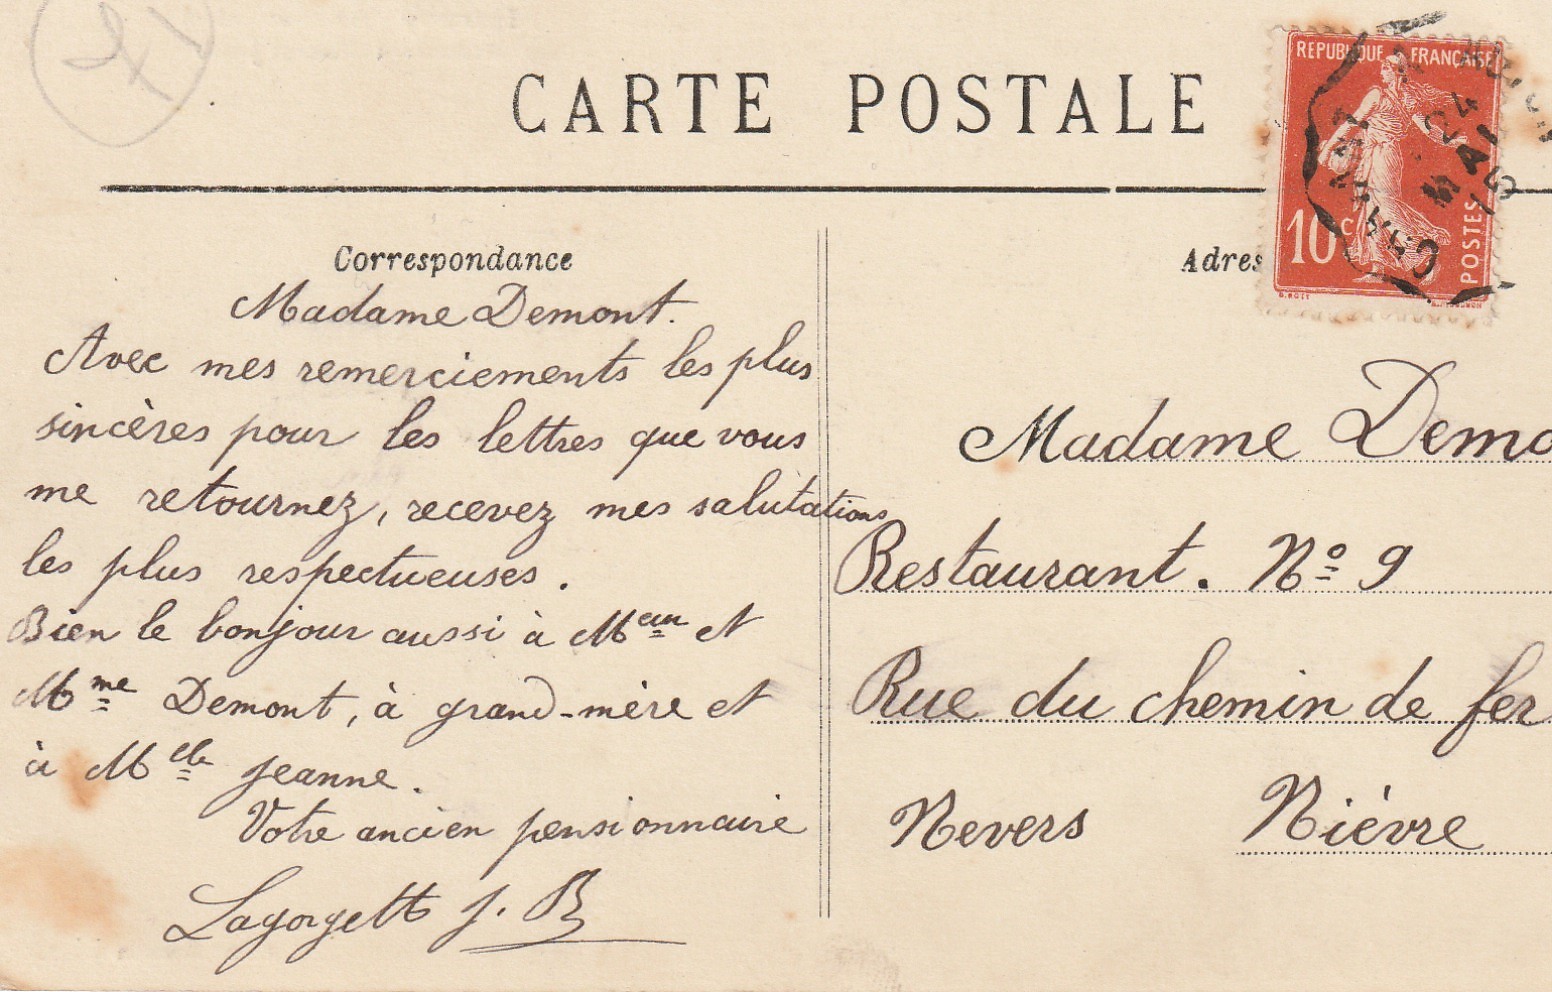 CARTE POSTALE
REPUBLIQUE FRANÇAISE
10c
POSTES
24
MAI
Correspondance
Madame Demont.
Avec mes remerciements les plus
sincères pour les lettres que vous
me retournez, recevez mes salutations
les plus respectueuses.
Bien le bonjour aussi à Meur et
Mme Demont, à grand-mère et
à Melle Jeanne.
Votre ancien pensionnaire
Lagorgett J. B
Adres
Madame Demo
Restaurant. No 9
Rue du chemin de fer
Nevers Nièvre